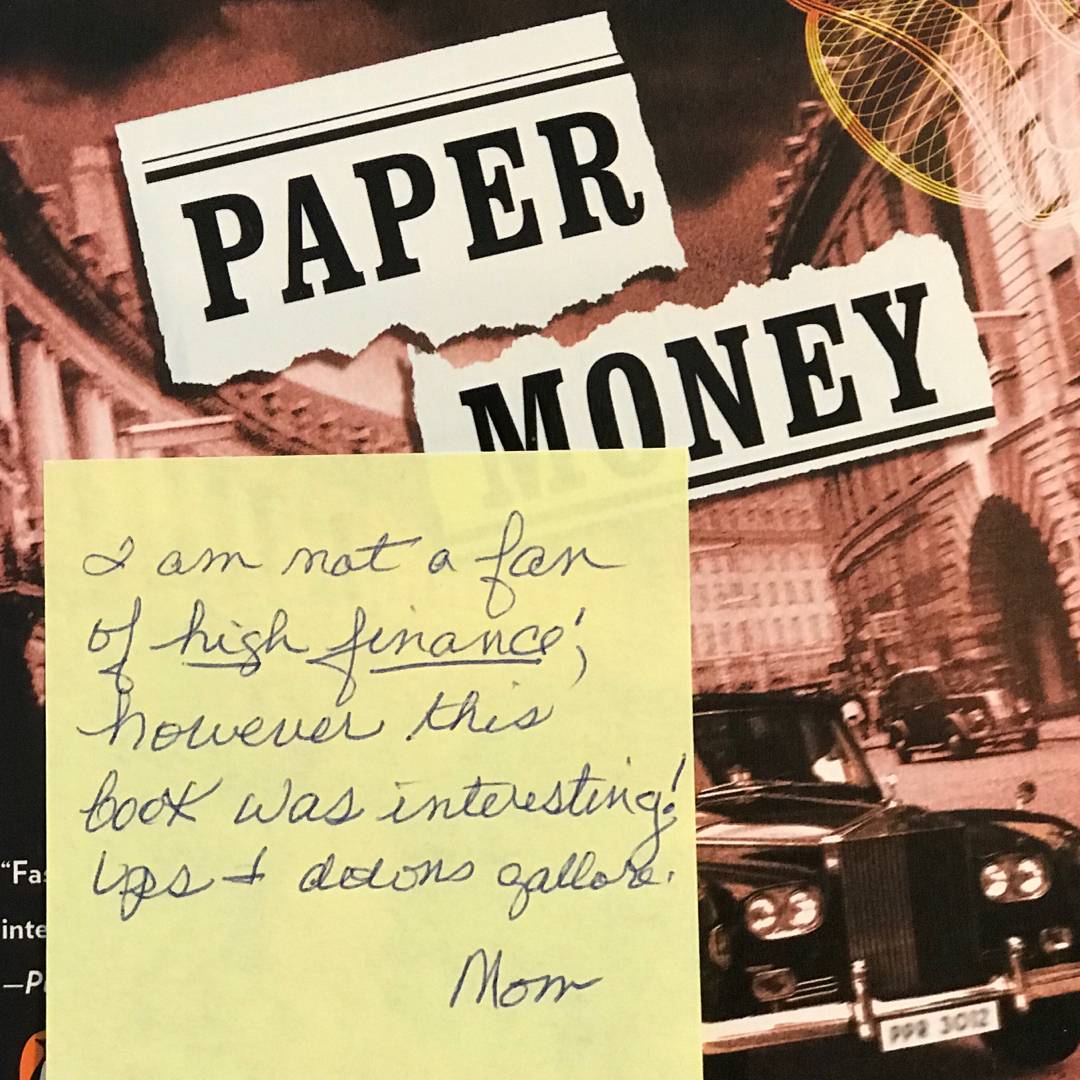 PAPER
MONEY
I am not a fan
of high finance;
however this
book was interesting!
Ups & downs gallore.
Mom
"Fas
inte
—P
PPR 3012